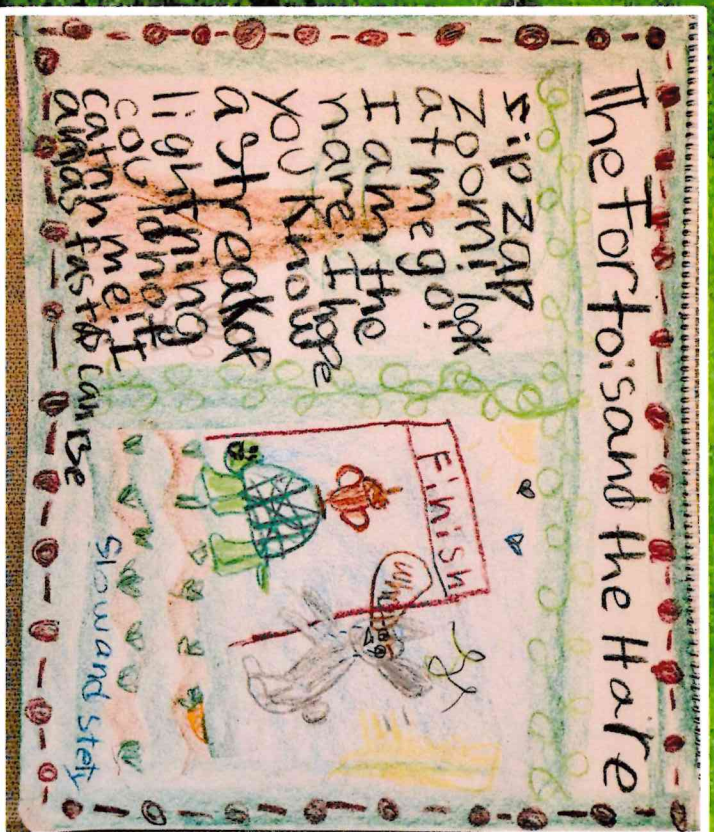 The Tortois and the Hare
sip zap
zoom! look
at me go!
I am the
hare. I hope
you know
a streak of
lightning
cou
catch me. I
am as fast as can Be
Finish
Slow and stety